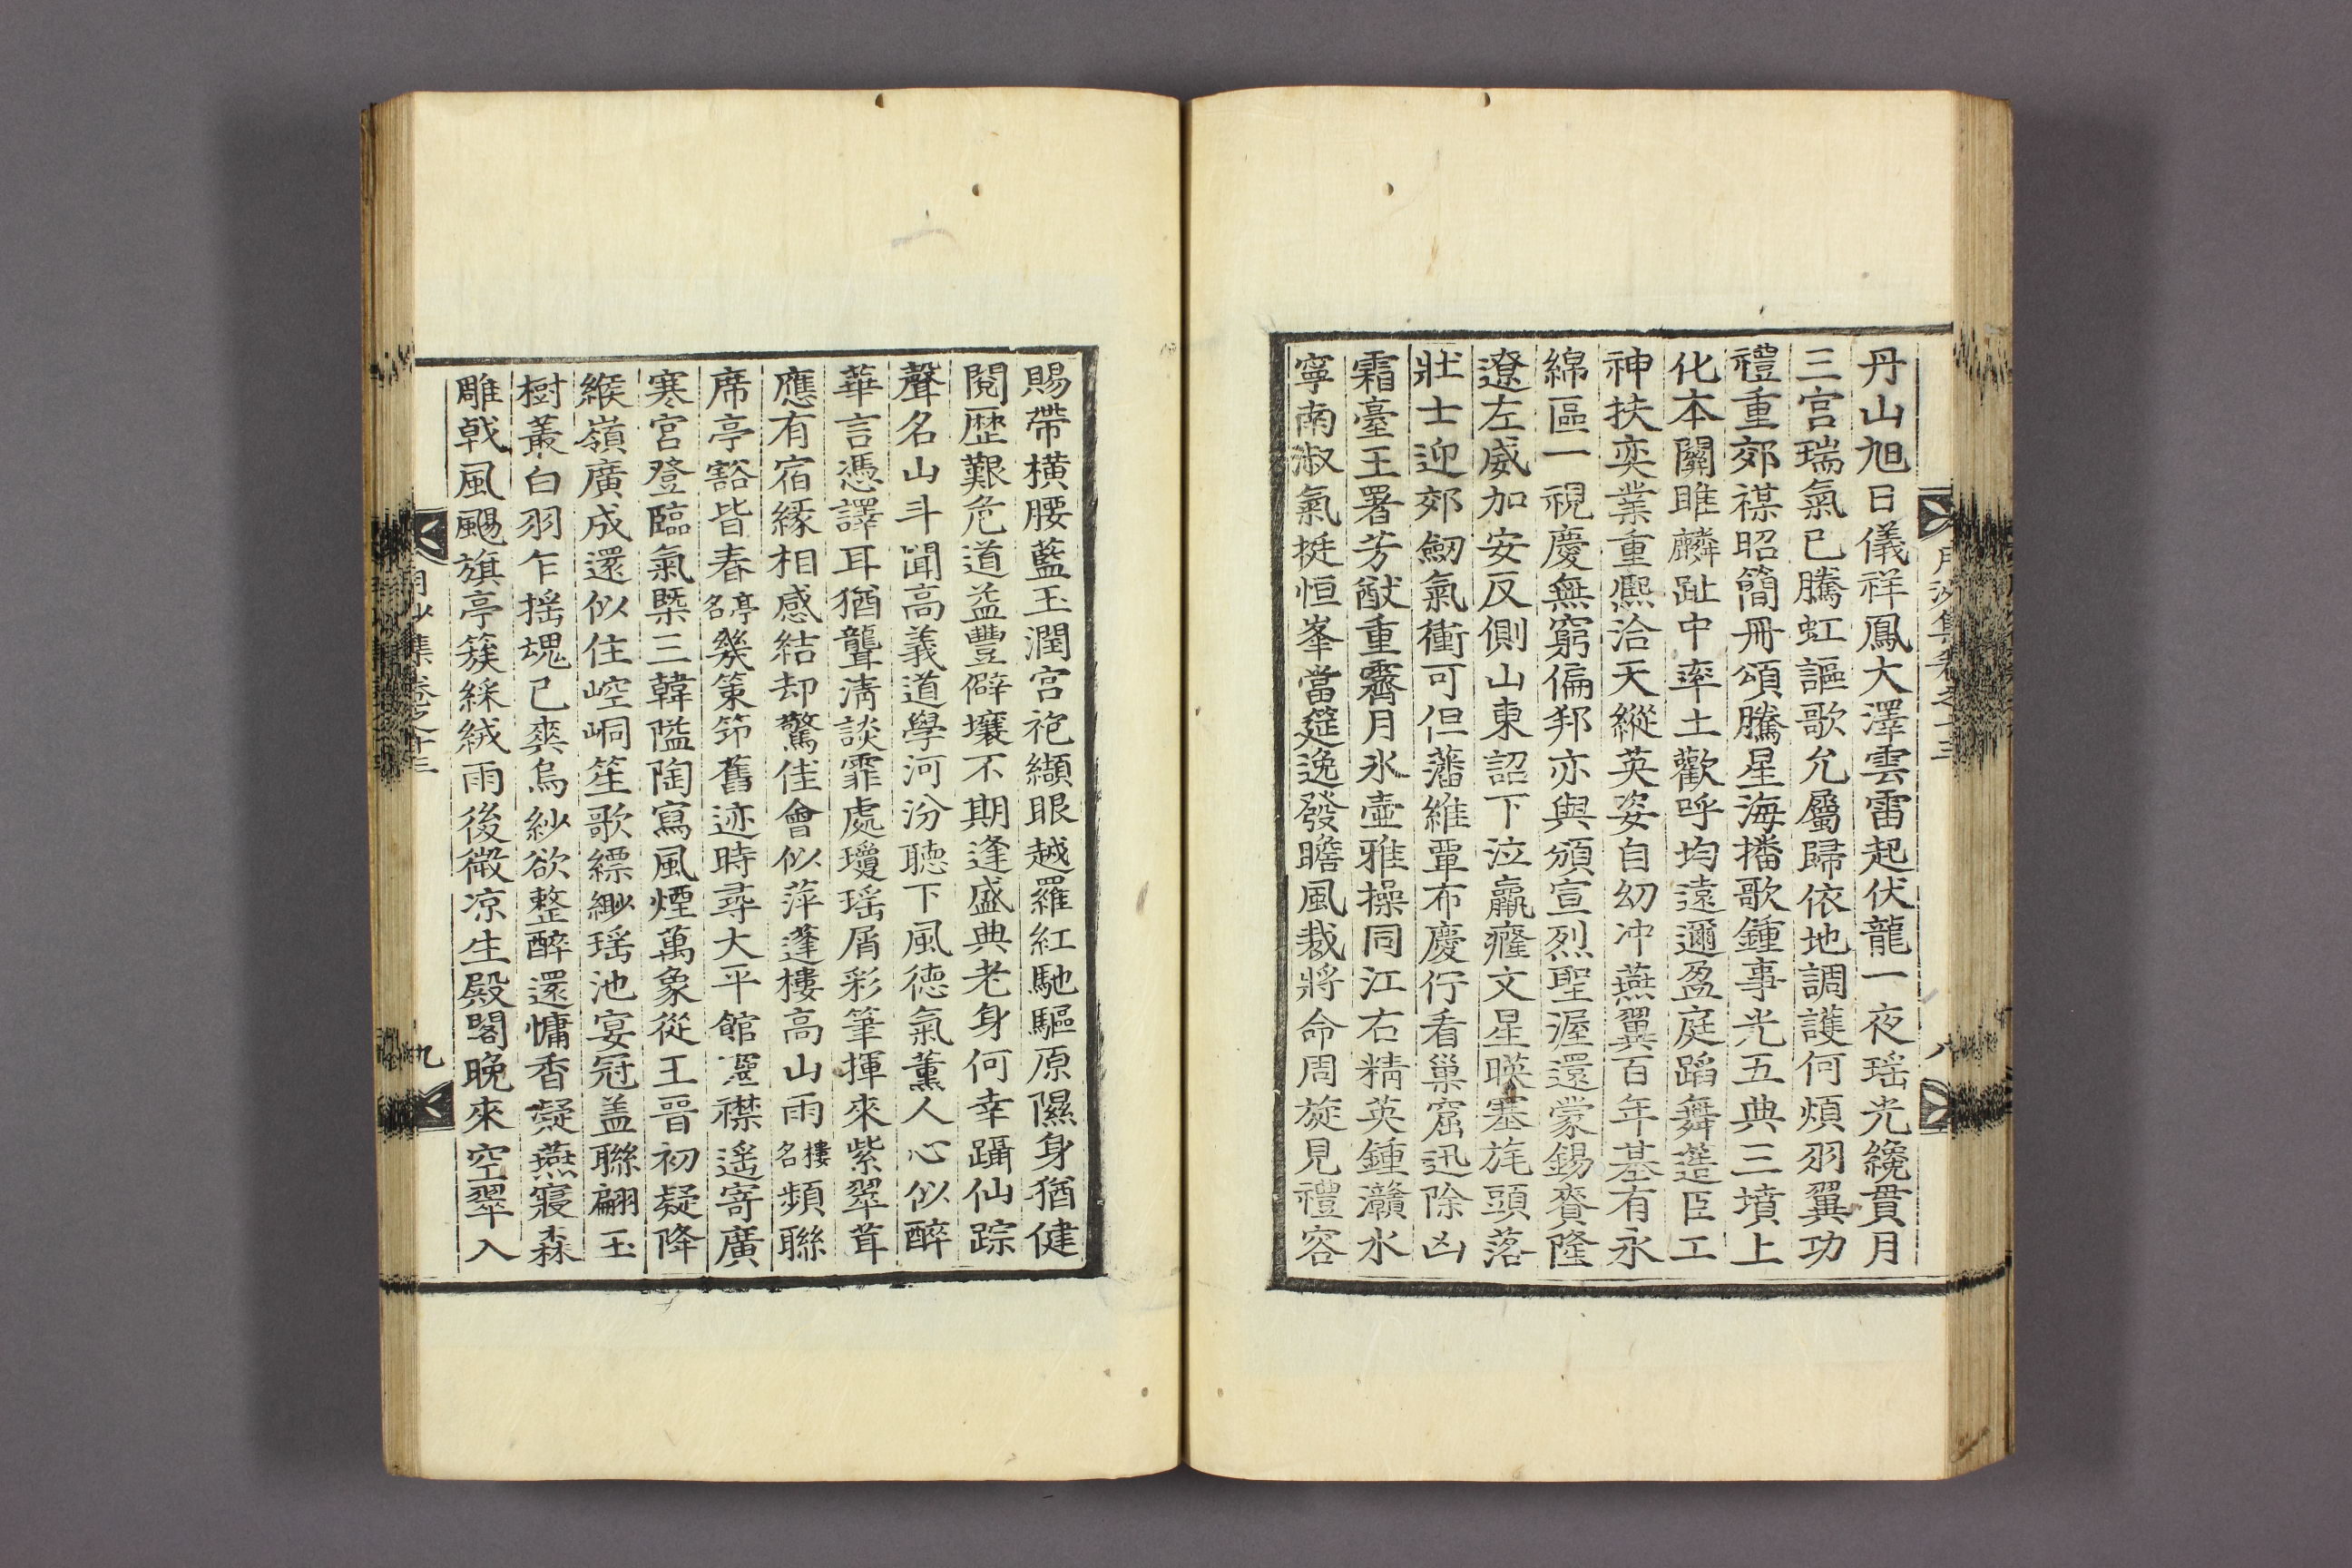 丹山旭日儀祥鳳大澤雲雷起伏龍一夜瑶光纔貫月
三宮瑞氣已騰虹謳歌允屬歸依地調護何煩羽翼功
禮重郊禖昭簡冊頌騰星海播歌鍾事光五典三墳上
化本關雎麟趾中率土歡呼均遠邇盈庭蹈舞萃臣工
神扶奕業重熈洽天縱英姿自幼冲燕翼百年基有永
綿區一視慶無窮偏邦亦與頒宣烈聖渥還蒙錫賚隆
遼左威加安反側山東詔下泣羸癃文星暎塞旄頭落
壯士迎郊劒氣衝可但藩維覃布慶佇看巢窟迅除凶
霜臺王署芳猷重霽月氷壺雅操同江右精英鍾灨水
寧南淑氣挺恒峯當筵逸發瞻風裁將命周旋見禮容
月沙集卷之十三
八
賜帶橫腰藍玉潤宮袍纈眼越羅紅馳驅原隰身猶健
閱歷艱危道益豐僻壤不期逢盛典老身何幸躡仙踪
聲名山斗聞高義道學河汾聽下風德氣薰人心似醉
華言憑譯耳猶聾淸談霏處瓊瑶屑彩筆揮來紫翠茸
應有宿緣相感結却驚佳會似萍蓬樓高山雨樓名頻聯
席亭豁皆春亭名幾策筇舊迹時尋大平館靈襟遙寄廣
寒宮登臨氣槩三韓隘陶寫風煙萬象從王晉初疑降
緱嶺廣成還似住崆峒笙歌縹緲瑶池宴冠盖聯翩玉
樹叢白羽乍搖塊已爽烏紗欲整醉還慵香凝燕寢森
雕戟風颺旗亭簇綵絨雨後微凉生殿閣晩來空翠入
月沙集卷之十三
九